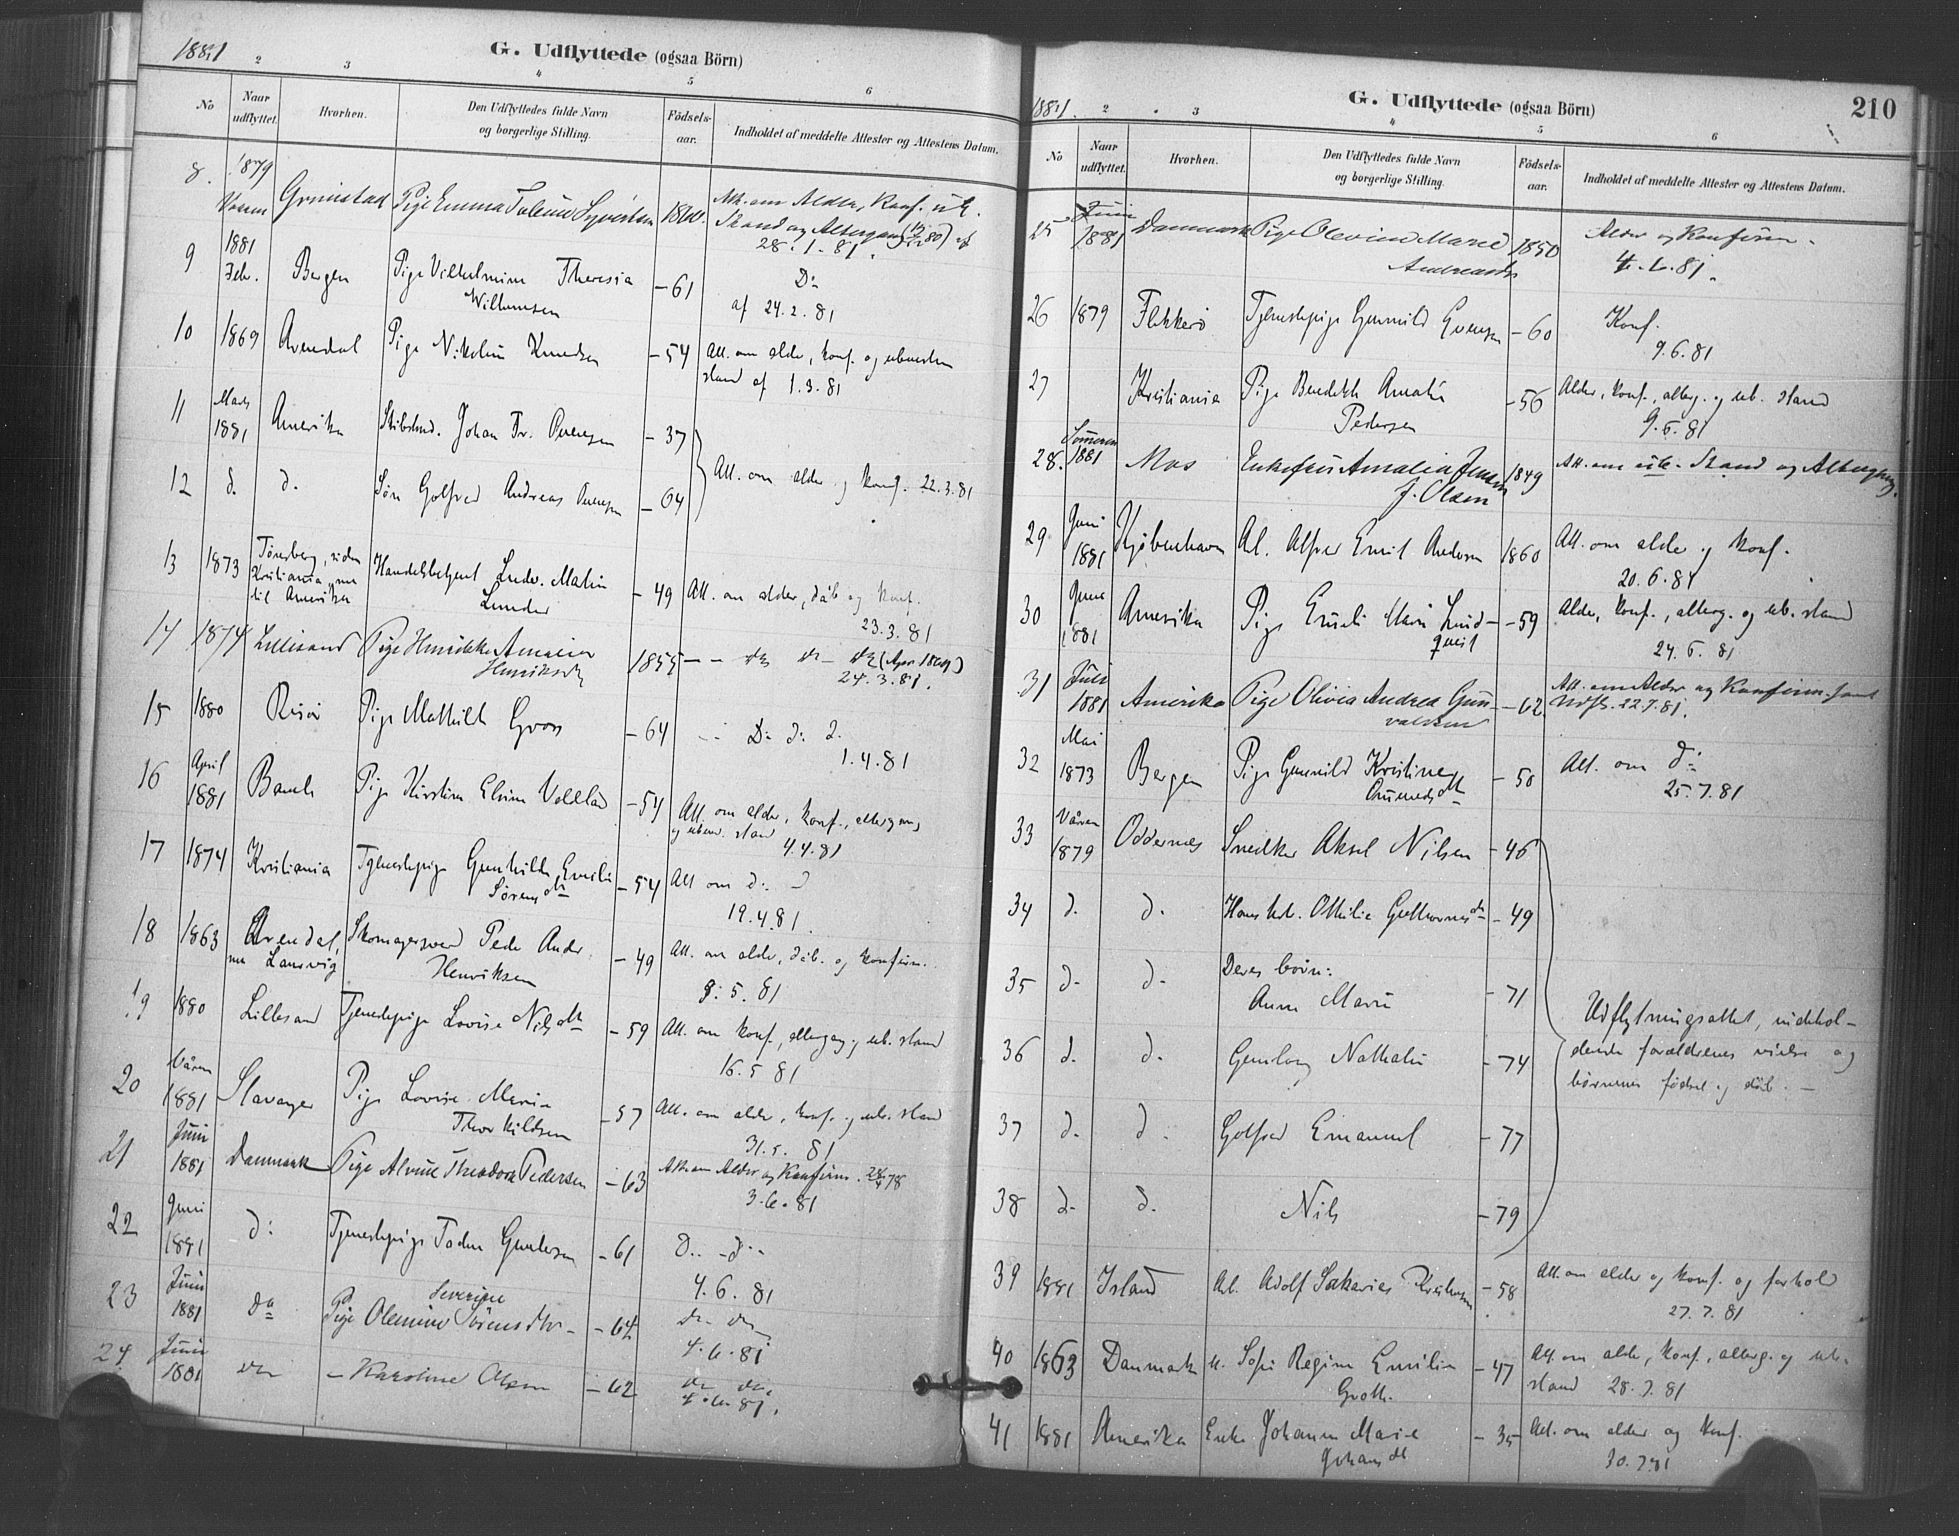 1881
G. Udflyttede (ogsaa Börn)
2 3 4 5 6
No
Naar udflyttet.
Hvorhen.
Den Udflyttedes fulde Navn og borgerlige Stilling.
Födsels-aar.
Indholdet af meddelte Attester og Attestens Datum.
8. 1879 Grimstad Pige Emma
Att. om Alder, Konf.
28.1.81.
9 1881 Febr. Bergen Pige Vilhelmine Theresia - 61 Do
Willumsen af 24.2.81
10 1869 Arendal Pige Nikoline Knudsen - 54 Att. om alder, konf. og
stand af 1.3.81
11 Marts 1881 Amerika Johan Fr. - 37
12 d. d. Søn Golfred Andreas - 64 Att. om alder og konf. 22.3.81
13 1873 Tønsberg, siden Handelsbetjent Ludv. - 49 Att. om alder, dåb og konf.
Kristiania, nu Lunder 23.3.81
til Amerika
14 1874 Lillesand Pige Henrikke Amalia 1855
24.3.81.
15 1880 Risør Pige Mathilde - 64 Do do d.
1.4.81
16 April 1881 Bamle Pige Kirstine - 54 Att. om alder, konf., altergang
stand 4.4.81
17 1874 Kristiania Tjenestepige Gunhild Emilie - 54 Att om d:
Sørensdtr 19.4.81.
18 1863 Arendal, Peder Andr. - 49 Att. om alder, dåb. og konfirm.
nu Laurvig Henriksen 5.81
19 1880 Lillesand Tjenestepige Lovise Nilsdtr - 59 Att. om konf., altergang og ub. stand
16.5 81
20 Våren 1881 Stavanger Pige Lovise Marie - 57 Att. om alder, konf. og ub. stand
Thorkildsen 31.5.81
21 Juni 1881 Danmark Pige Alvine Theodora Pedersen - 63 Att. om Alder og Konfirm.
3.6.81
22 Juni 1881 d: Tjenestepige - 61 D.. - d..
4.6.81
23 Juni 1881 Do Severine
Pige Olemine Sørensdtr - 62
4.6.81
24 Juni 1881 - Karoline Olsen - 62
4.6.81.
1881.
G. Udflyttede (ogsaa Börn)
210
2 3 4 5 6
No
Naar udflyttet.
Hvorhen.
Den Udflyttedes fulde Navn og borgerlige Stilling.
Födsels-aar.
Indholdet af meddelte Attester og Attestens Datum.
25 Juni 1881 Danmark Pige Olevine Marie 1850 Alder og Konfirm.
4.6.81.
26 1879 Flekkerø Tjenestepige Gunnild - 60 Konf.
9.6.81
27 Kristiania Pige Amalie - 56 Alder, konf., alterg. og ub. stand
Pedersen 9.6.81
28. Sommeren 1881 Mos Enkefru Amalia Jensen 1849 Att. om ub. Stand og Altergang.
f. Olsen
29 Juni 1881 Kjøbenhavn Alfred Emil Andersen 1860 Att. om alder og konf.
20.6.81
30 June 1881 Amerika Pige Emeli Marie Lind- - 59 Alder, konf., alterg. og ub. stand
qvist 24.6.81
31 Juli 1881 Amerika Pige Olivia Andrea Gun- - 62. Att. om Alder og Konfirm.
valdsen 22.7.81.
32 Mai 1873 Bergen Pige Gunnild Kristine - 50 Att. om d:
25.7.81
33 Våren 1879 Oddernes Snedker Aksel Nilsen - 46
34 d. d. Hans Othilie - 49
35 d. d. Deres børn:
Anne Marie - 71
Udflytningsattest, indehol-
36 d. d. Nathalie - 74 dende forældrenes vielse og
børnenes fødsel og dåb. -
37 d. d. Golfred Emanuel - 77
38 d. d. Nils - 79
39 1881 Island Adolf Sakarias - 58 Att. om alder og konf. og forhold
27.7.81
40 1863 Danmark Sofie Regine Emilie - 47 Att. om alder, konf., alterg. og ub.
Groth. stand 28.7.81
41 1881 Amerika Enke Johanne Marie - 35 Att. om alder og konf.
30.7.81